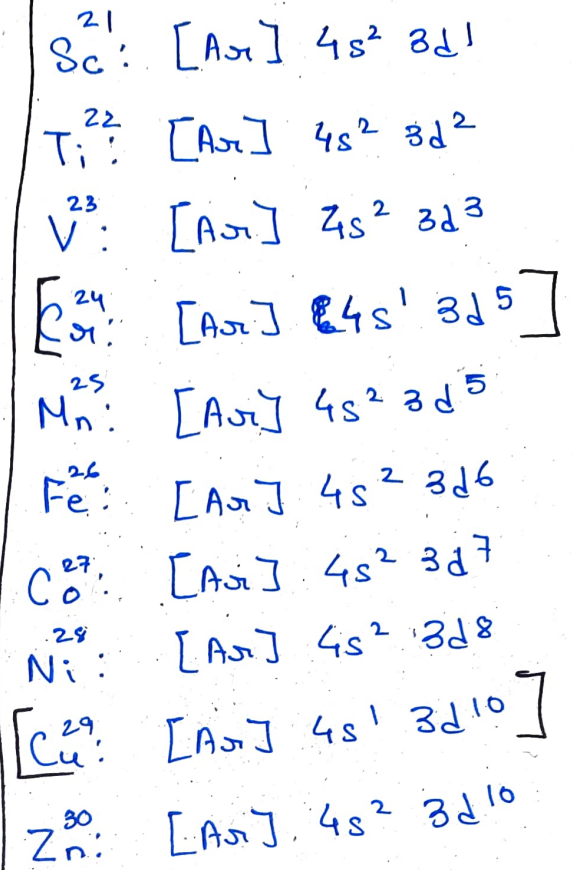 Sc²¹: [Ar] 4s² 3d¹
Ti²²: [Ar] 4s² 3d²
V²³: [Ar] 4s² 3d³
[Cr²⁴: [Ar] 4s¹ 3d⁵]
Mn²⁵: [Ar] 4s² 3d⁵
Fe²⁶: [Ar] 4s² 3d⁶
Co²⁷: [Ar] 4s² 3d⁷
Ni²⁸: [Ar] 4s² 3d⁸
[Cu²⁹: [Ar] 4s¹ 3d¹⁰]
Zn³⁰: [Ar] 4s² 3d¹⁰